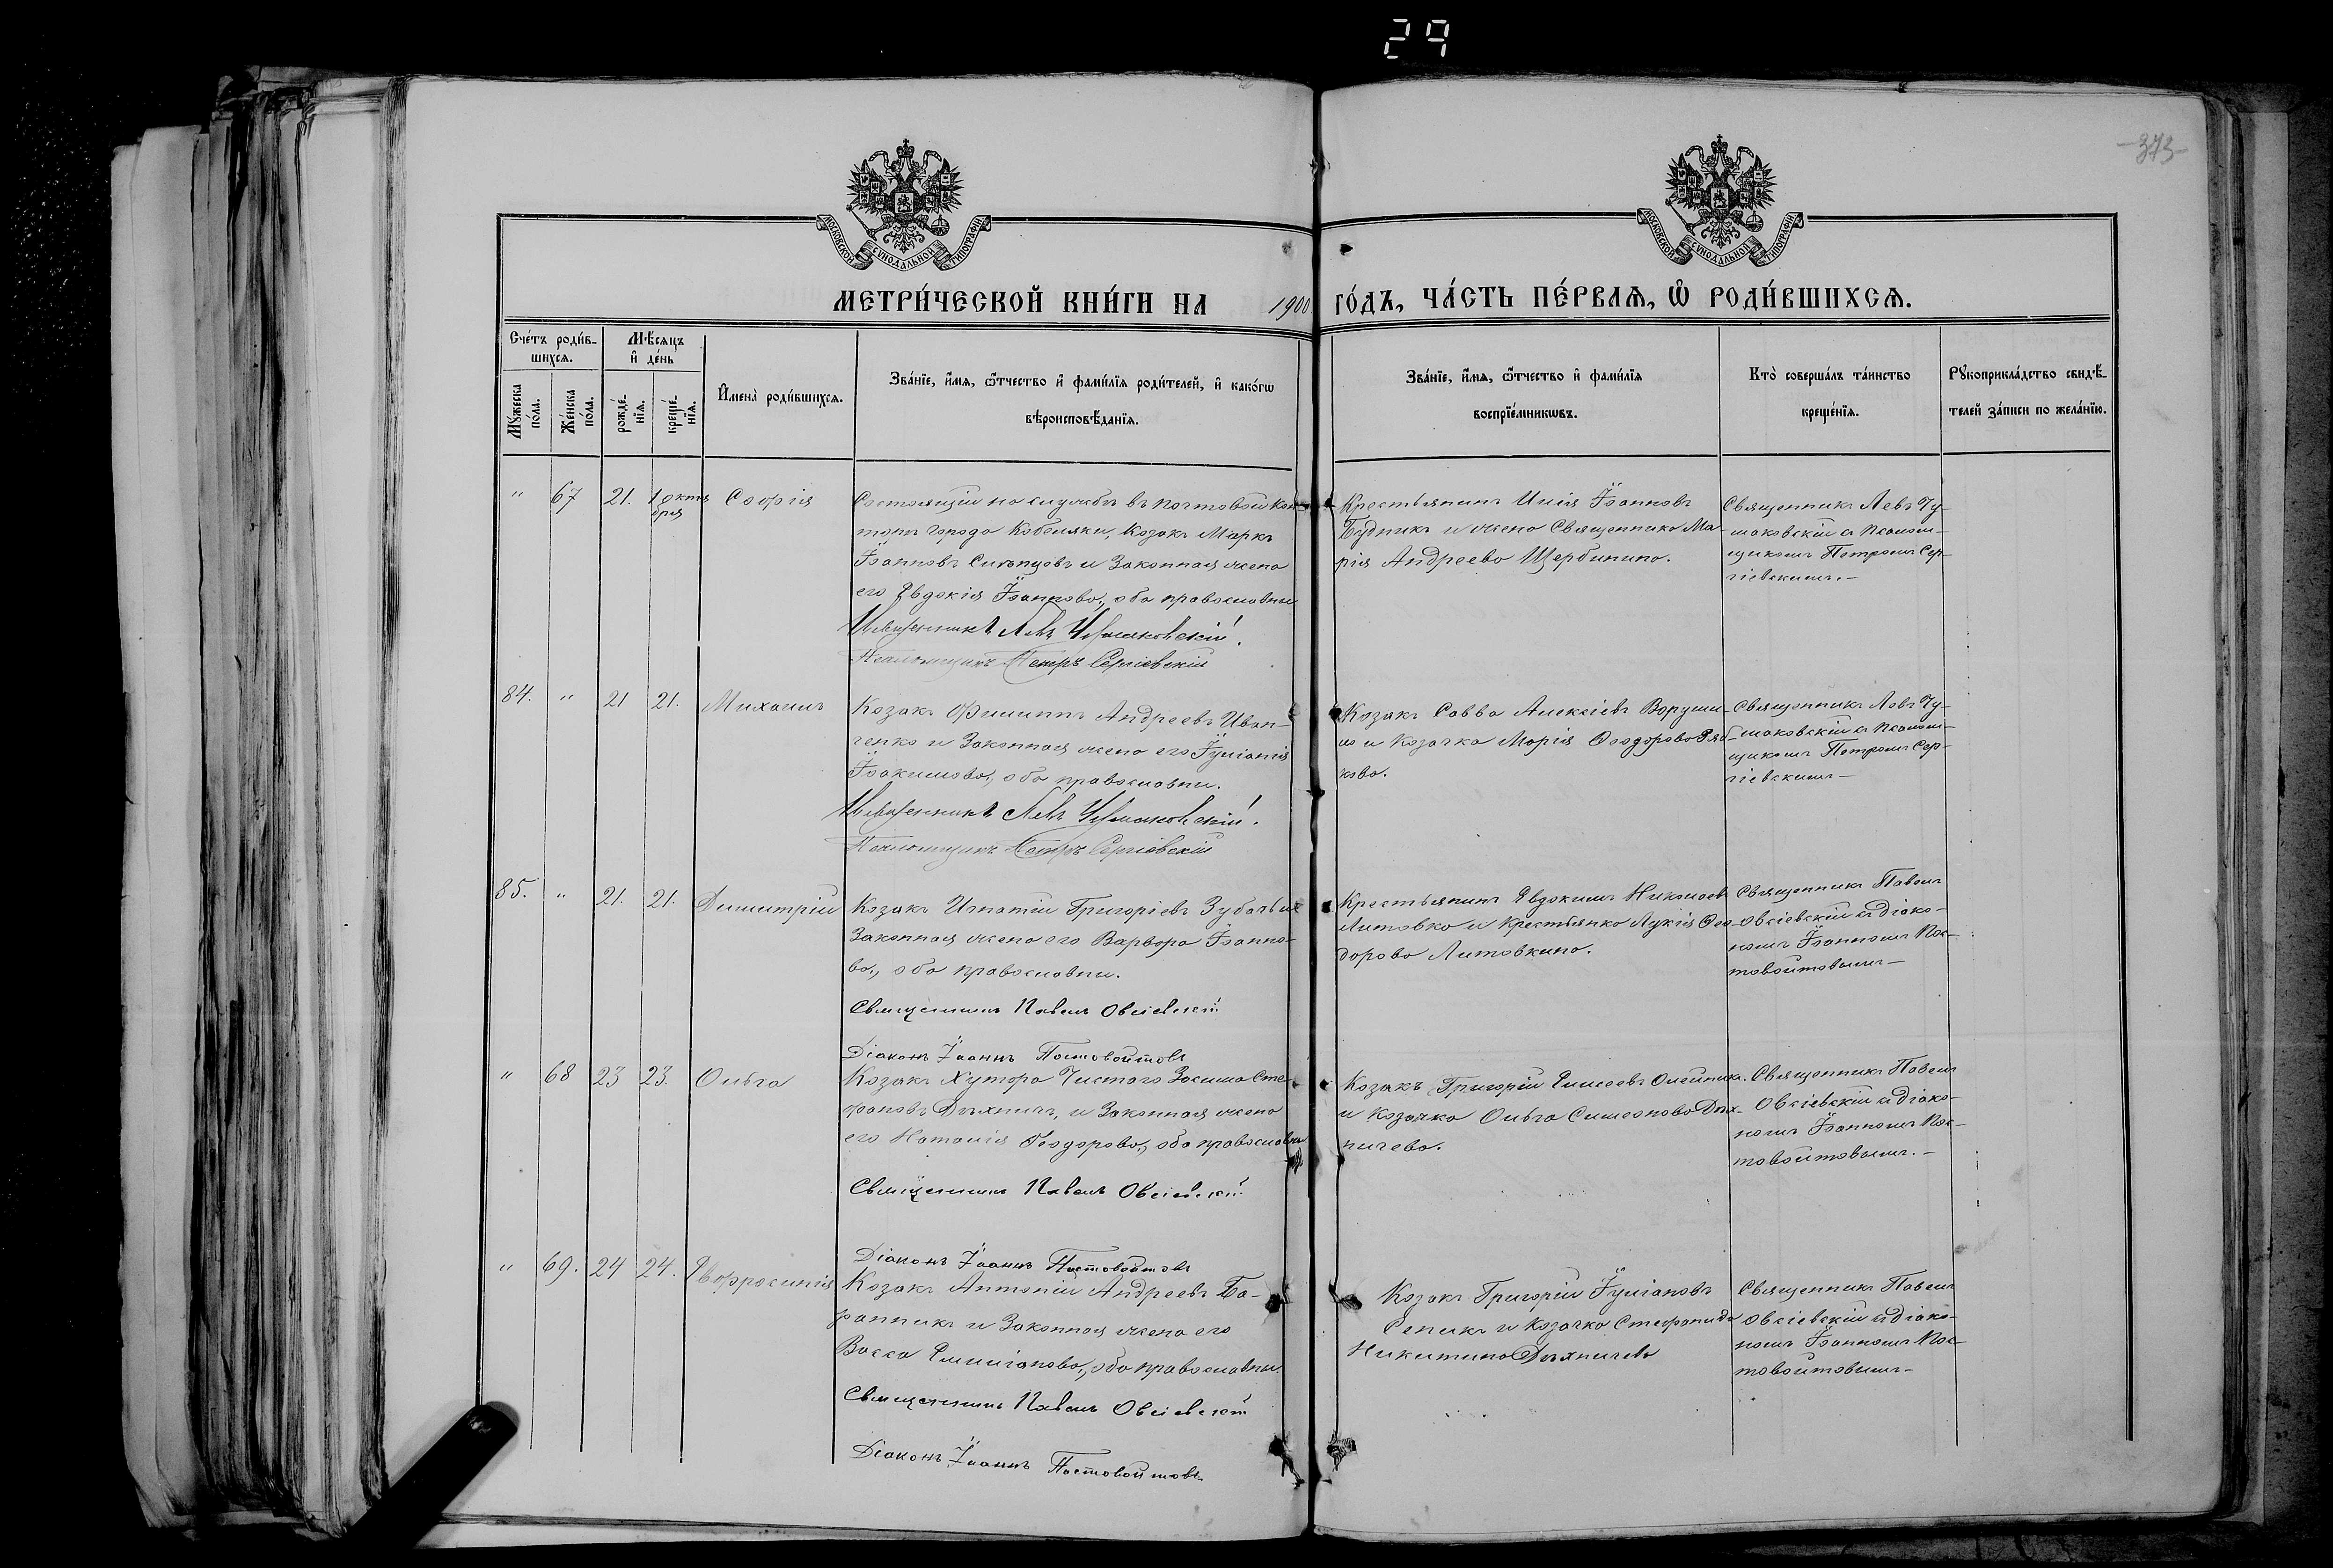 29
-373-
МОСКОВСКОЙ СѴНОДАЛЬНОЙ ТИПОГРАФІИ
МОСКОВСКОЙ СѴНОДАЛЬНОЙ ТИПОГРАФІИ
МЕТРИ́ЧЕСКОЙ КНИ́ГИ НА 1900 ГО́ДЪ, ЧА́СТЬ ПЕ́РВАЯ, Ѡ҆ РОДИ́ВШИХСЯ.
Сче́тъ роди́в-
шихся.
Мꙋ́жеска
по́ла.
Же́нска
по́ла.
Мѣ́сяцъ
и҆ де́нь
рожде́-
нїя.
креще́-
нїя.
И҆мена̀ роди́вшихся.
Зва́нїе, и҆́мя, ѻ҆́тчество и҆ фами́лїя роди́телей, и҆ како́гѡ
вѣроисповѣ́данїя.
Зва́нїе, и҆́мя, ѻ҆́тчество и҆ фами́лїя
воспрїе́мникѡвъ.
Кто̀ соверша́лъ та́инство
креще́нїя.
Рꙋкоприкла́дство свидѣ́-
телей за́писи по жела́нїю.
" 67 21. 1 октя
бря
Софія
Состоящій на службѣ въ почтовой кон-
торѣ города Кобеляки, Козакъ Маркъ
Іоанновъ и Законная жена
его Евдокія Іоаннова, оба православны
Священникъ Левъ Чушаковскій
Псаломщикъ Петръ Сергіевскій
Крестьянинъ Илія Іоанновъ
Будникъ и жена Священника Ма-
рія Андреева Щербинина.
Священникъ Левъ Чу-
шаковскій съ Псалом-
щикомъ Петромъ Сер-
гіевскимъ.–
84. " 21 21. Михаилъ
Козакъ Филиппъ Андреевъ Иван-
ченко и Законная жена его Іуліанія
Іоакимова, оба православны.
Священникъ Левъ Чушаковскій
Псаломщикъ Петръ Сергіевскій
Козакъ Савва Алексіевъ Воруши-
ло и Козачка Марія Ѳеодорова Ряб-
кова.
Священникъ Левъ Чу-
шаковскій съ Псалом-
щикомъ Петромъ Сер-
гіевскимъ–
85. " 21. 21. Димитрій
Козакъ Игнатій Григоріевъ
Законная жена его Варвара Іоанно-
ва, оба православны.
Священникъ Павелъ Овсіевскій
Діаконъ Іоаннъ Постовойтовъ
Крестьянинъ Евдокимъ Николаевъ
Литовко и Крестьянка Лукія Ѳео-
дорова Литовкина.
Священникъ Павелъ
Овсіевскій съ Діако-
номъ Іоанномъ Пос-
товойтовымъ–
" 68 23 23. Ольга
Козакъ Хутора Чистаго Зосима Сте-
фановъ Дѣхничъ, и Законная жена
его Наталія Ѳеодорова, оба православны
Священникъ Павелъ Овсіевскій
Діаконъ Іоаннъ Постовойтовъ
Козакъ Григорій Олейникъ.
и Козачка Ольга Симеонова Дѣх-
ничева.
Священникъ Павелъ
Овсіевскій съ Діако-
номъ Іоанномъ Пос-
товойтовымъ.–
" 69. 24 24. Евфросинія
Козакъ Антоній Андреевъ Ба-
ранникъ и Законная жена его
Васса Емиліанова, оба православны.
Священникъ Павелъ Овсіевскій
Діаконъ Іоаннъ Постовойтовъ
Козакъ Григорій Іуліановъ
Сепикъ и Козачка Стефанида
Никитина Дѣхничева
Священникъ Павелъ
Овсіевскій съ Діако-
номъ Іоанномъ Пос-
товойтовымъ–